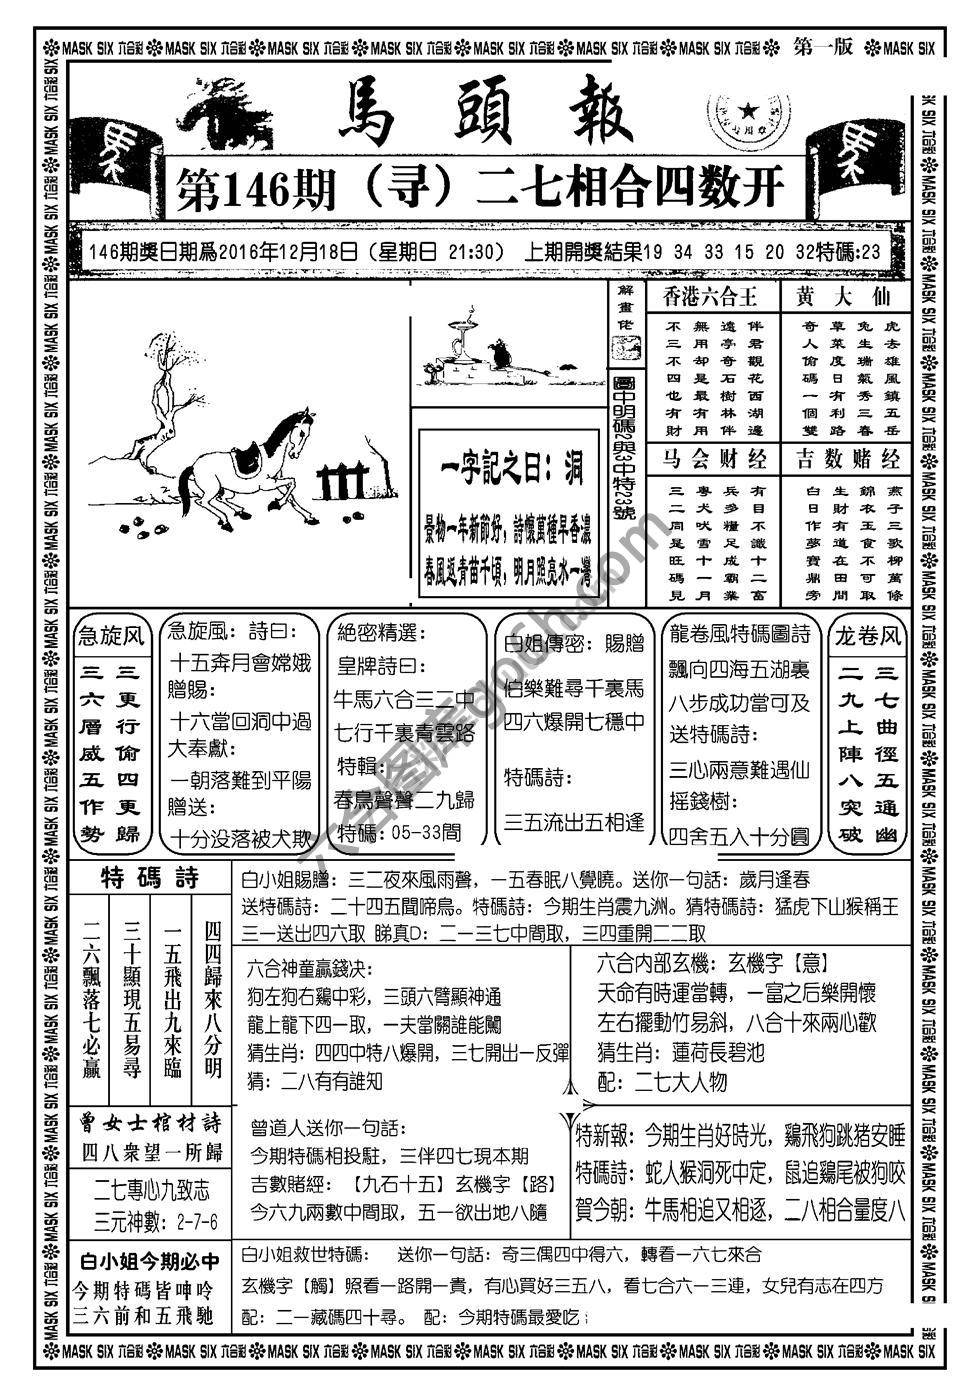 MASK SIX 六合彩 MASK SIX 六合彩 MASK SIX 六合彩 MASK SIX 六合彩 MASK SIX 六合彩 MASK SIX 六合彩 MASK SIX 六合彩 第一版 MASK SIX
馬頭報
专用章
第146期（寻）二七相合四数开
146期獎日期爲2016年12月18日（星期日 21:30） 上期開獎結果19 34 33 15 20 32特碼:23
解畫佬
圖中明碼2與3中特23號
一字記之曰：洞
景物一年新節好，詩懷萬種早香濃
春風返青苗千頃，明月照亮水一灣
香港六合王
伴君觀花西湖邊
遠亭奇石樹林伴
無用却是最有用
不三不四也有財
黄大仙
虎去雄風鎮五岳
兔生瑞氣秀三春
草菜度日有利路
奇人偷碼一個雙
马会财经
有目不識十二富
兵多糧足成霸業
專犬吠雪十一月
三二同是旺碼見
吉数赌经
燕子三歌柳萬條
錦衣玉食不可取
生財有道在田間
白日作夢寶鼎旁
急旋风
三更行偷四更歸
三六層威五作勢
急旋風：詩曰：
十五奔月會嫦娥
贈賜：
十六當回洞中過
大奉獻：
一朝落難到平陽
贈送：
十分没落被犬欺
絶密精選：
皇牌詩曰：
牛馬六合三二中
七行千裏青雲路
特輯：
春鳥聲聲二九歸
特碼：05-33間
白姐傳密：賜贈
伯樂難尋千裏馬
四六爆開七穩中
特碼詩：
三五流出五相逢
龍卷風特碼圖詩
飄向四海五湖裏
八步成功當可及
送特碼詩：
三心兩意難遇仙
摇錢樹：
四舍五入十分圓
龙卷风
三七曲徑五通幽
二九上陣八突破
特碼詩
四四歸來八分明
一五飛出九來臨
三十顯現五易尋
二六飄落七必贏
白小姐賜贈：三二夜來風雨聲，一五春眠八覺曉。送你一句話：歲月逢春
送特碼詩：二十四五聞啼鳥。特碼詩：今期生肖震九洲。猜特碼詩：猛虎下山猴稱王
三一送出四六取 睇真D：二一三七中間取，三四重開二二取
六合神童贏錢决：
狗左狗右鷄中彩，三頭六臂顯神通
龍上龍下四一取，一夫當關誰能闖
猜生肖：四四中特八爆開，三七開出一反彈
猜：二八有有誰知
六合内部玄機：玄機字【意】
天命有時運當轉，一富之后樂開懷
左右擺動竹易斜，八合十來兩心歡
猜生肖：蓮荷長碧池
配：二七大人物
曾女士棺材詩
四八衆望一所歸
二七專心九致志
三元神數：2-7-6
曾道人送你一句話：
今期特碼相投駐，三伴四七現本期
吉數賭經：【九石十五】玄機字【路】
今六九兩數中間取，五一欲出地八隨
特新報：今期生肖好時光，鷄飛狗跳猪安睡
特碼詩：蛇人猴洞死中定，鼠追鷄尾被狗咬
賀今朝：牛馬相追又相逐，二八相合量度八
白小姐今期必中
今期特碼皆呻吟
三六前和五飛馳
白小姐救世特碼： 送你一句話：奇三偶四中得六，轉看一六七來合
玄機字【觸】照看一路開一貴，有心買好三五八，看七合六一三連，女兒有志在四方
配：二一藏碼四十尋。 配：今期特碼最愛吃
六合图库go6h.com
MASK SIX 六合彩 MASK SIX 六合彩 MASK SIX 六合彩 MASK SIX 六合彩 MASK SIX 六合彩 MASK SIX 六合彩 MASK SIX 六合彩 MASK SIX 六合彩 MASK SIX